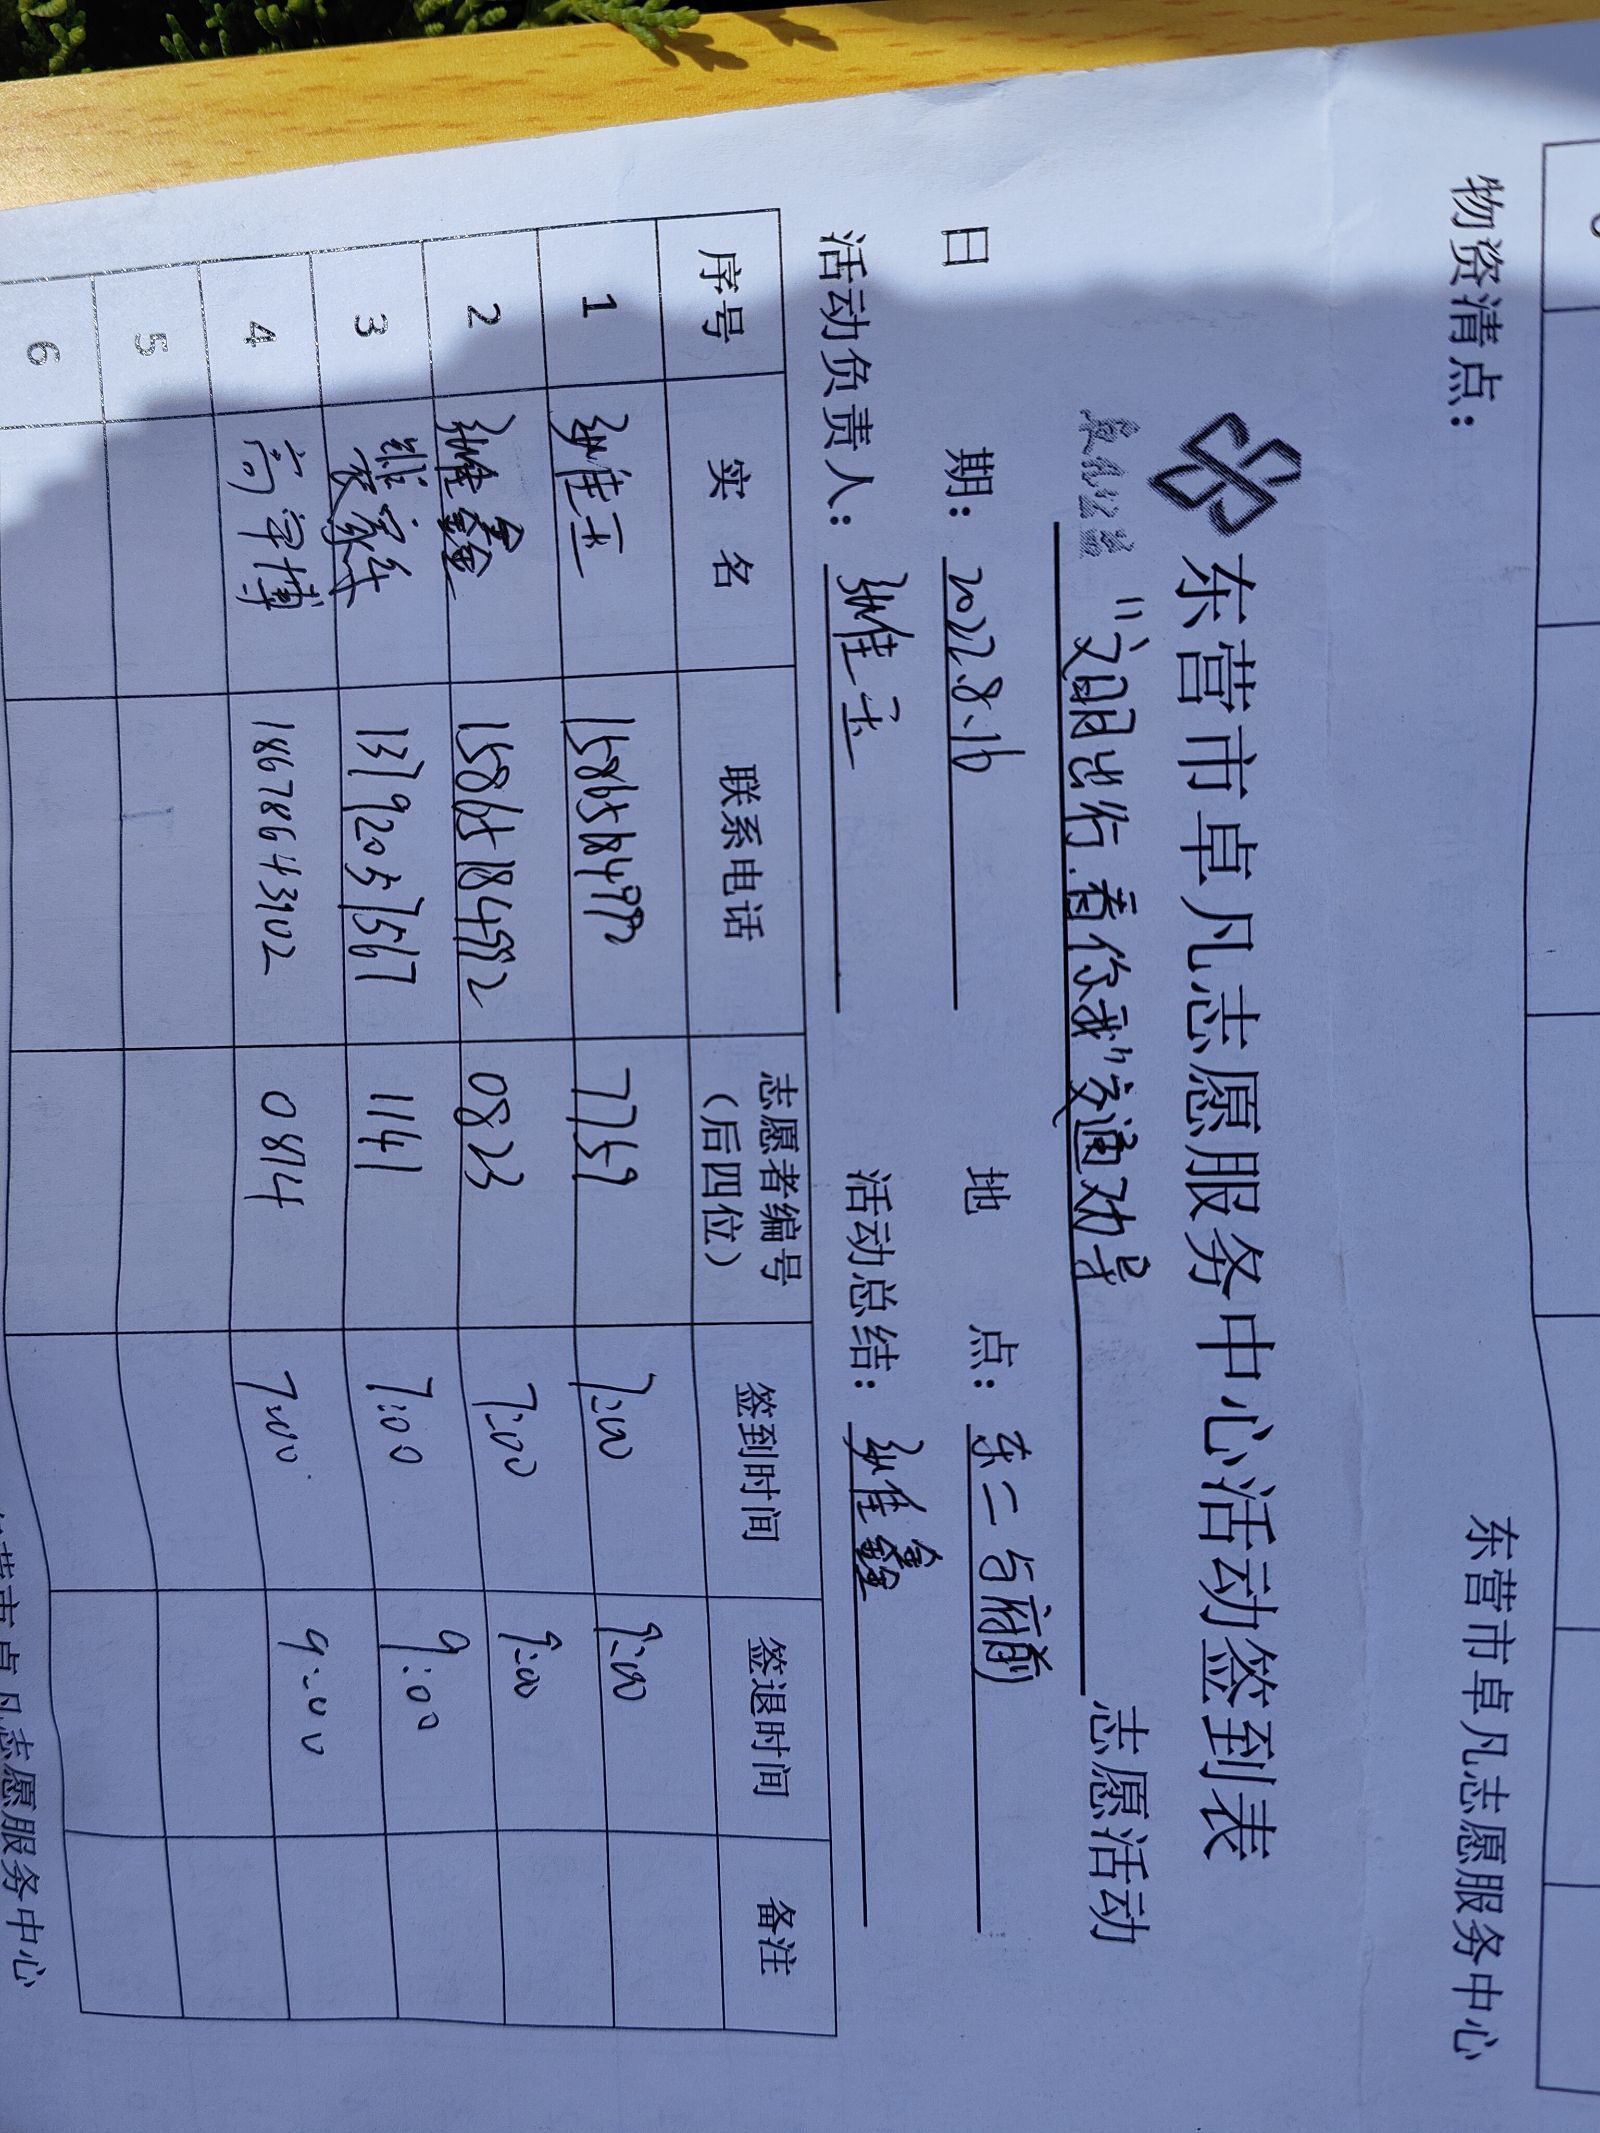 物资清点：
东营市卓凡志愿服务中心
东营市卓凡志愿服务中心活动签到表
"文明出行.有你我"交通劝导 志愿活动
日 期： 2022.8.16 地 点： 东二与府前
活动负责人： 活动总结：
序号 实 名 联系电话 志愿者编号（后四位） 签到时间 签退时间 备注
1 7759 7:00 9:00
2 15865184992 0823 7:00 9:00
3 13792057567 1141 7:00 9:00
4 高宇博 18678643902 0814 7:00 9:00
5
6
营市卓凡志愿服务中心